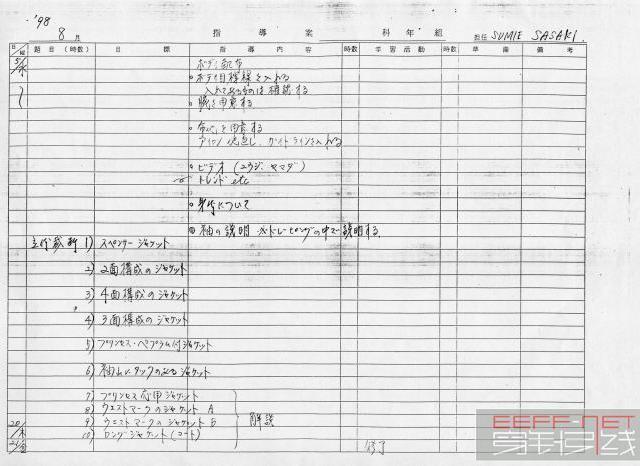 '98
8月 指導案 科年組 担任 SUMIE SASAKI.
日/曜 題目(時数) 目標 指導内容 時数 学習活動 時数 準備 備考
5/水 ボディ配布
○ボディ目標線を入れる
入れてあるものは確認する
○腕を用意する
を用意する
アイロン ガイドラインを入れる
○ビデオ (ユウジ・ヤマダ)
トレンド etc
について
袖の説明 ※ドレーピングの中で説明する
立体裁断 1) スペンサージャケット
2) 2面構成のジャケット
3) 4面構成のジャケット
4) 3面構成のジャケット
5) プリンセス・ペプラム付ジャケット
6) 袖山にタックのあるジャケット
7) プリンセス応用ジャケット
8) ウエストマークのジャケット A
9) ウエストマークのジャケット B 解説
20/木 10) ロングジャケット(コート)
21/金 修了
EEFF-NET
穿针引线